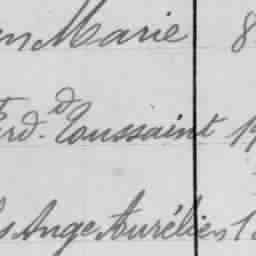 Marie 8
Ferd.d Toussaint 1
Ange Aurélien 1